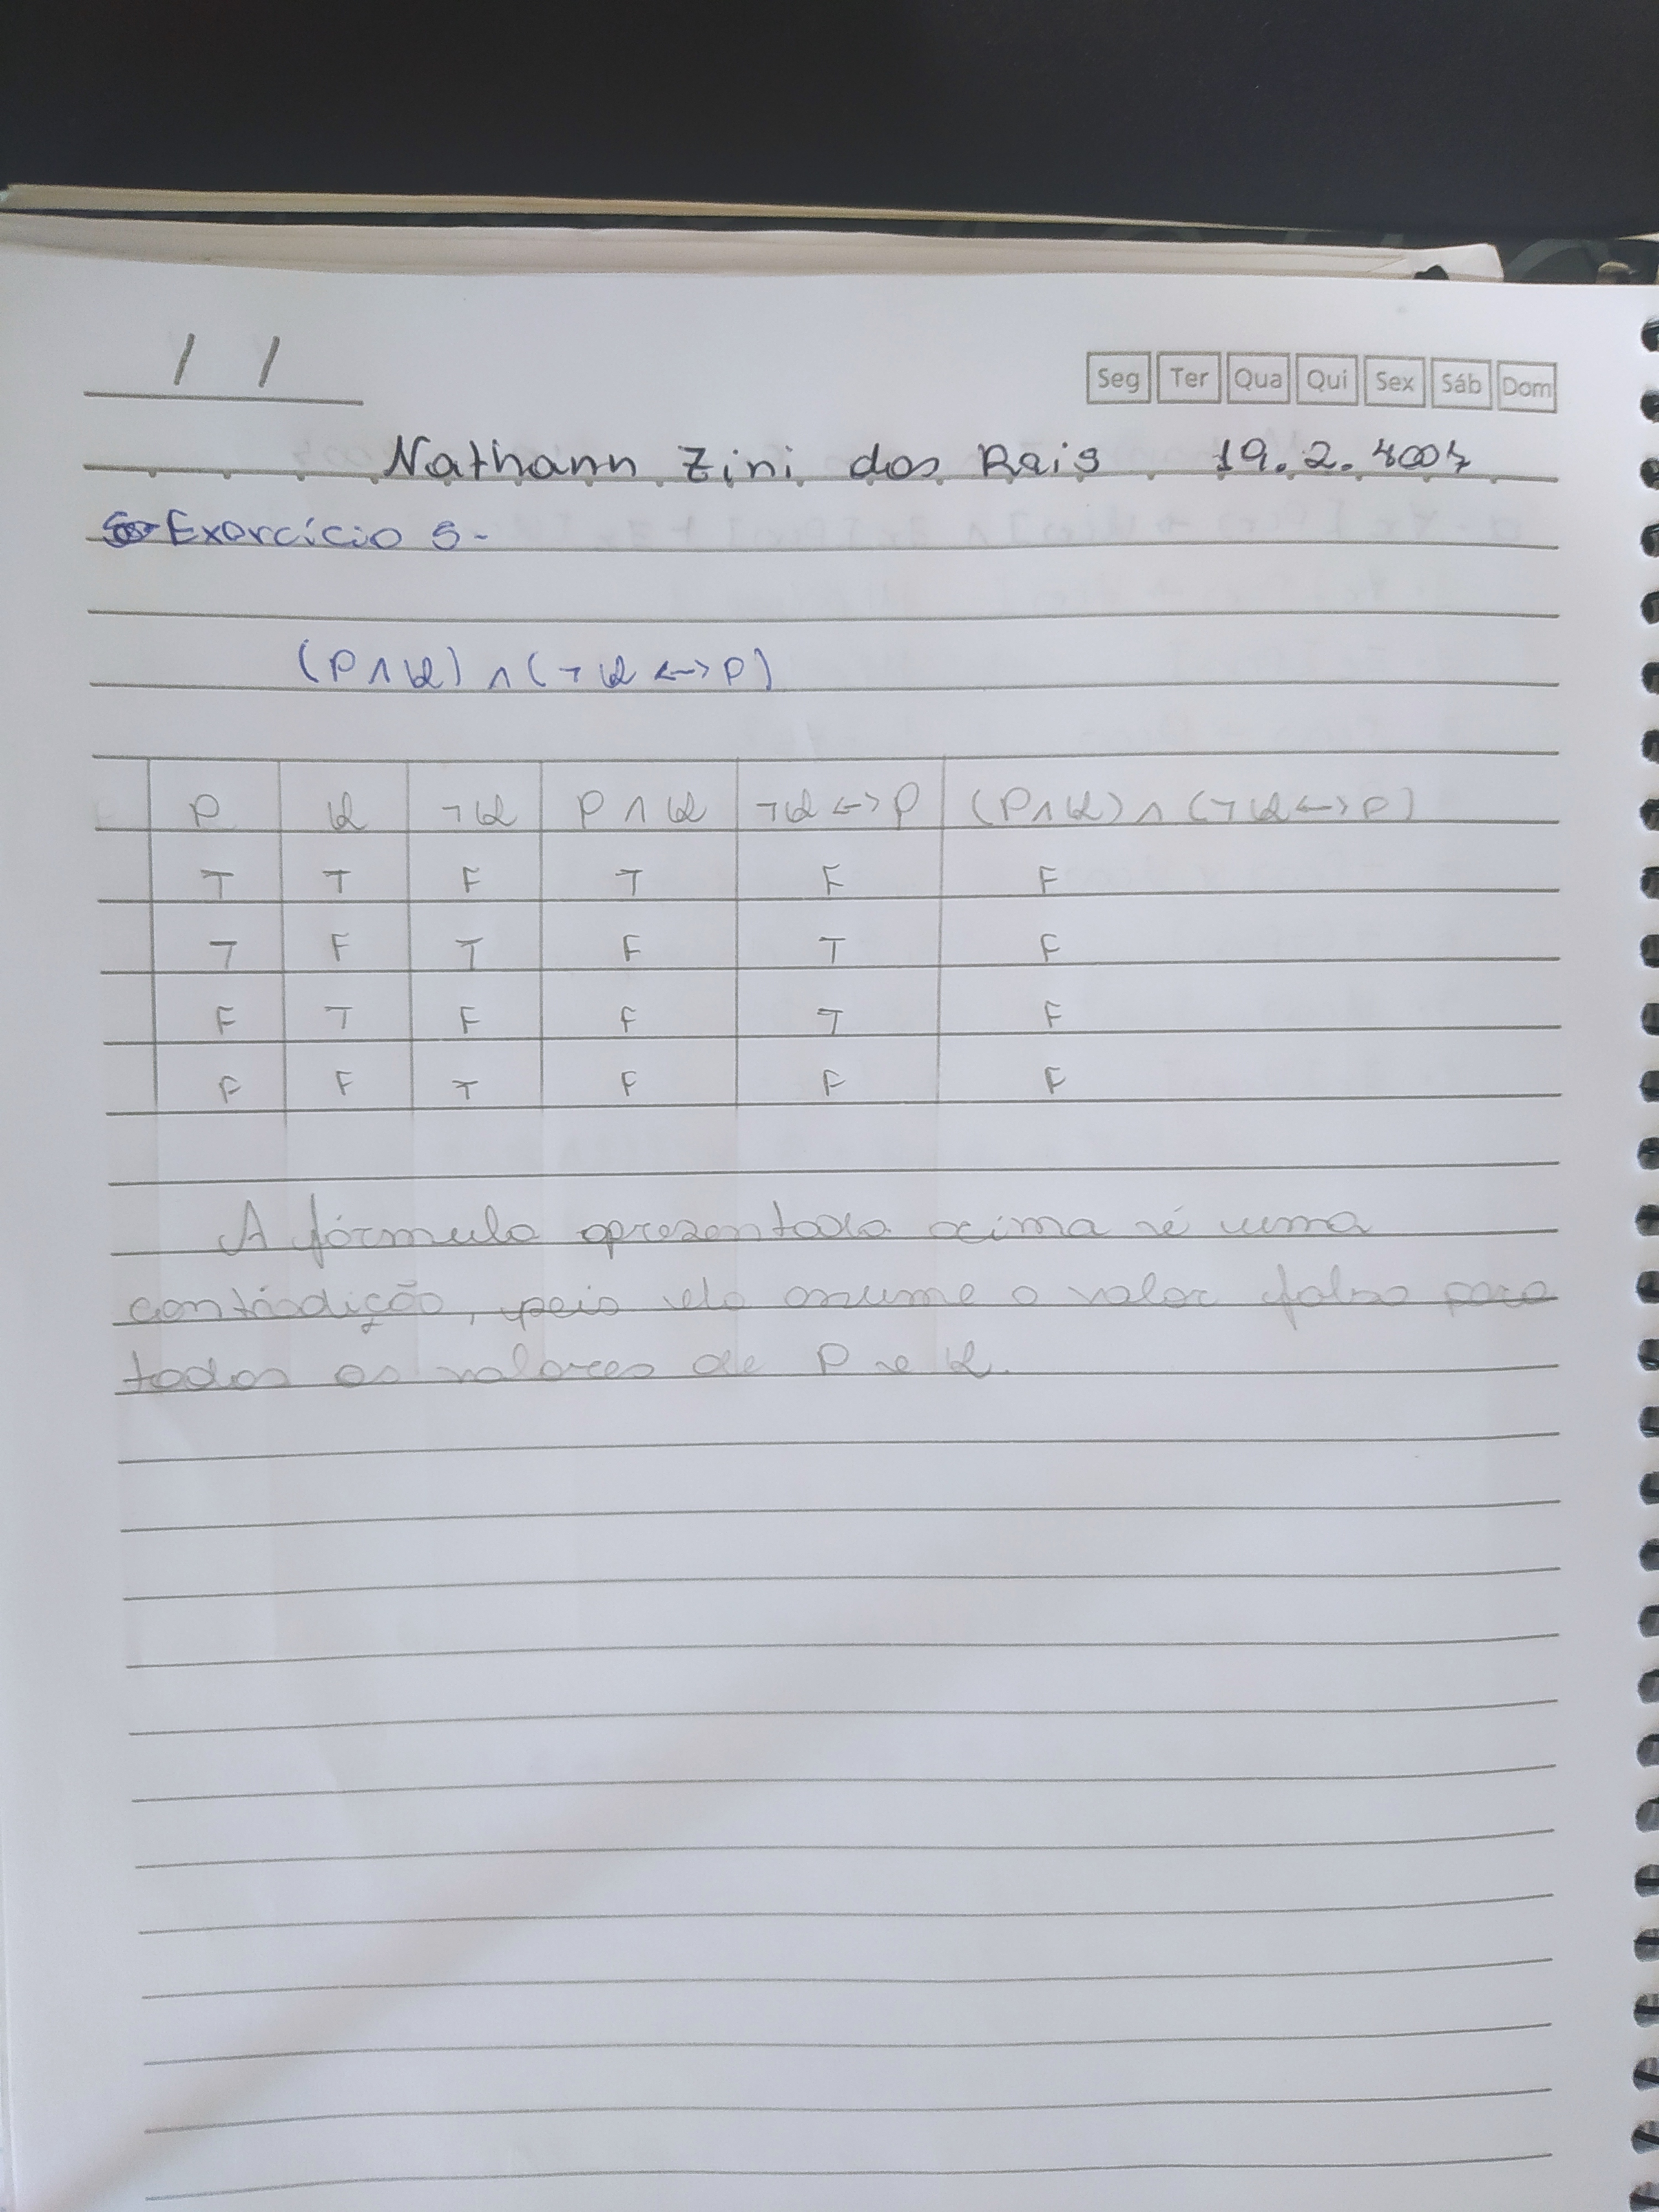 / /
Seg Ter Qua Qui Sex Sáb Dom
Nathann Zini dos Reis 19.2.4007
Exercício 5-
(P ∧ Q) ∧ (¬Q ↔ P)
P Q ¬Q P ∧ Q ¬Q ↔ P (P ∧ Q) ∧ (¬Q ↔ P)
T T F T F F
T F T F T F
F T F F T F
F F T F F F
A fórmula apresentada acima é uma
contradição, pois ela assume o valor falso para
todos os valores de P e Q.